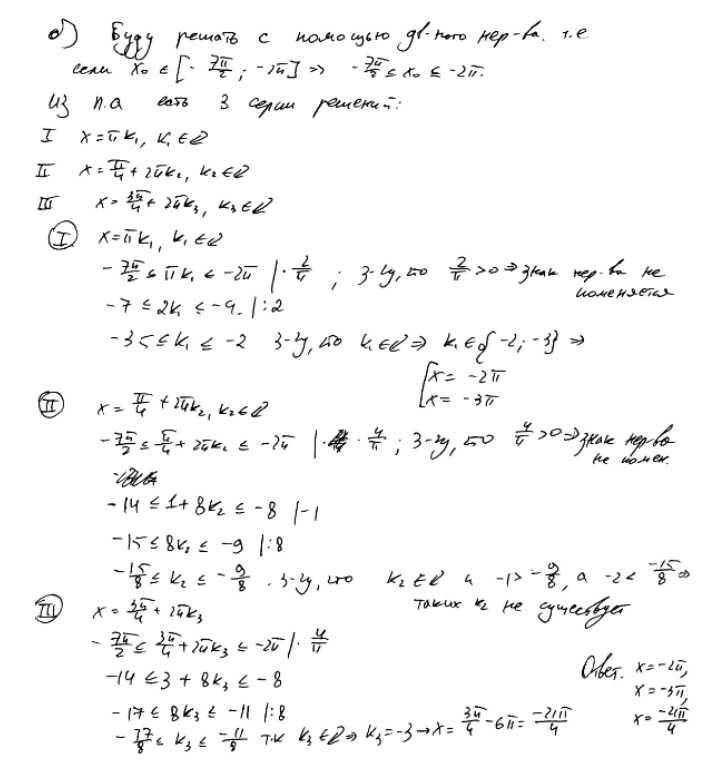 б) Буду решать с помощью дв-ного нер-ва. т.е
если x₀ ∈ [-7π/2; -2π] ⇒ -7π/2 ≤ x₀ ≤ -2π.
Из п.а есть 3 серии решений:
I x = πk₁, k₁ ∈ Z
II x = π/4 + 2πk₂, k₂ ∈ Z
III x = 3π/4 + 2πk₃, k₃ ∈ Z
I x = πk₁, k₁ ∈ Z
-7π/2 ≤ πk₁ ≤ -2π | · 2/π ; З-чу, что 2/π > 0 ⇒ знак нер-ва не
поменяется
-7 ≤ 2k₁ ≤ -4. | :2
-3,5 ≤ k₁ ≤ -2 З-чу, что k₁ ∈ Z ⇒ k₁ ∈ {-2; -3} ⇒
[x = -2π
[x = -3π
II x = π/4 + 2πk₂, k₂ ∈ Z
-7π/2 ≤ π/4 + 2πk₂ ≤ -2π | · 4/π ; З-чу, что 4/π > 0 ⇒ знак нер-ва
не помен.
-14 ≤ 1 + 8k₂ ≤ -8 | -1
-15 ≤ 8k₂ ≤ -9 | :8
-15/8 ≤ k₂ ≤ -9/8 . З-чу, что k₂ ∈ Z и -1 > -9/8, а -2 < -15/8 ⇒
таких k₂ не существует
III x = 3π/4 + 2πk₃
-7π/2 ≤ 3π/4 + 2πk₃ ≤ -2π | · 4/π
-14 ≤ 3 + 8k₃ ≤ -8
-17 ≤ 8k₃ ≤ -11 | :8
-17/8 ≤ k₃ ≤ -11/8 т.к k₃ ∈ Z ⇒ k₃ = -3 → x = 3π/4 - 6π = -21π/4
Ответ. x = -2π,
x = -3π,
x = -21π/4